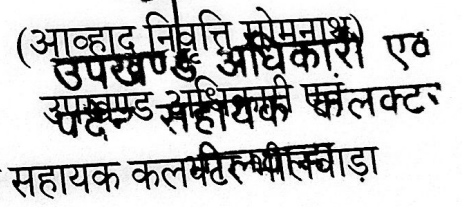 (आव्हाद निवृत्ति सोमनाथ)
उपखण्ड अधिकारी एवं
उपखण्ड अधिकारी एवं
पदेन सहायक कलक्टर
सहायक कलक्टर भीलवाड़ा